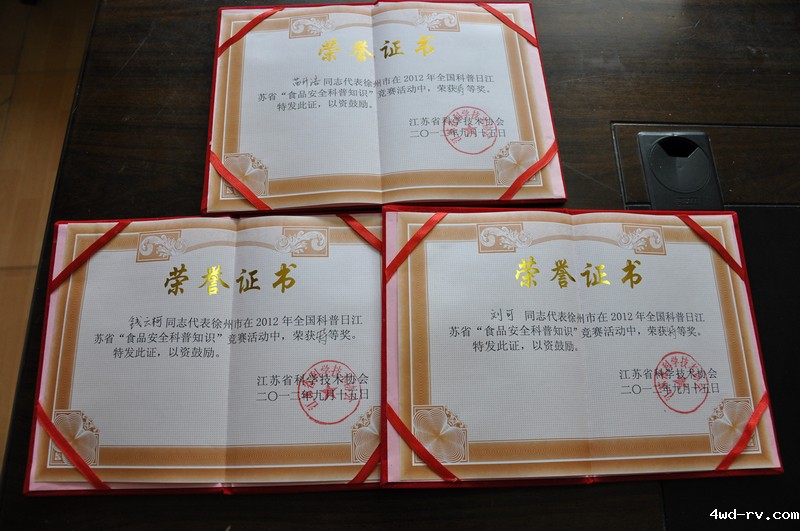 荣誉证书
同志代表徐州市在2012年全国科普日江
苏省“食品安全科普知识”竞赛活动中，荣获特等奖。
特发此证，以资鼓励。
江苏省科学技术协会
二〇一二年九月十五日
荣誉证书
钱云柯同志代表徐州市在2012年全国科普日江
苏省“食品安全科普知识”竞赛活动中，荣获特等奖。
特发此证，以资鼓励。
江苏省科学技术协会
二〇一二年九月十五日
荣誉证书
刘可同志代表徐州市在2012年全国科普日江
苏省“食品安全科普知识”竞赛活动中，荣获特等奖。
特发此证，以资鼓励。
江苏省科学技术协会
二〇一二年九月十五日
4wd-rv.com